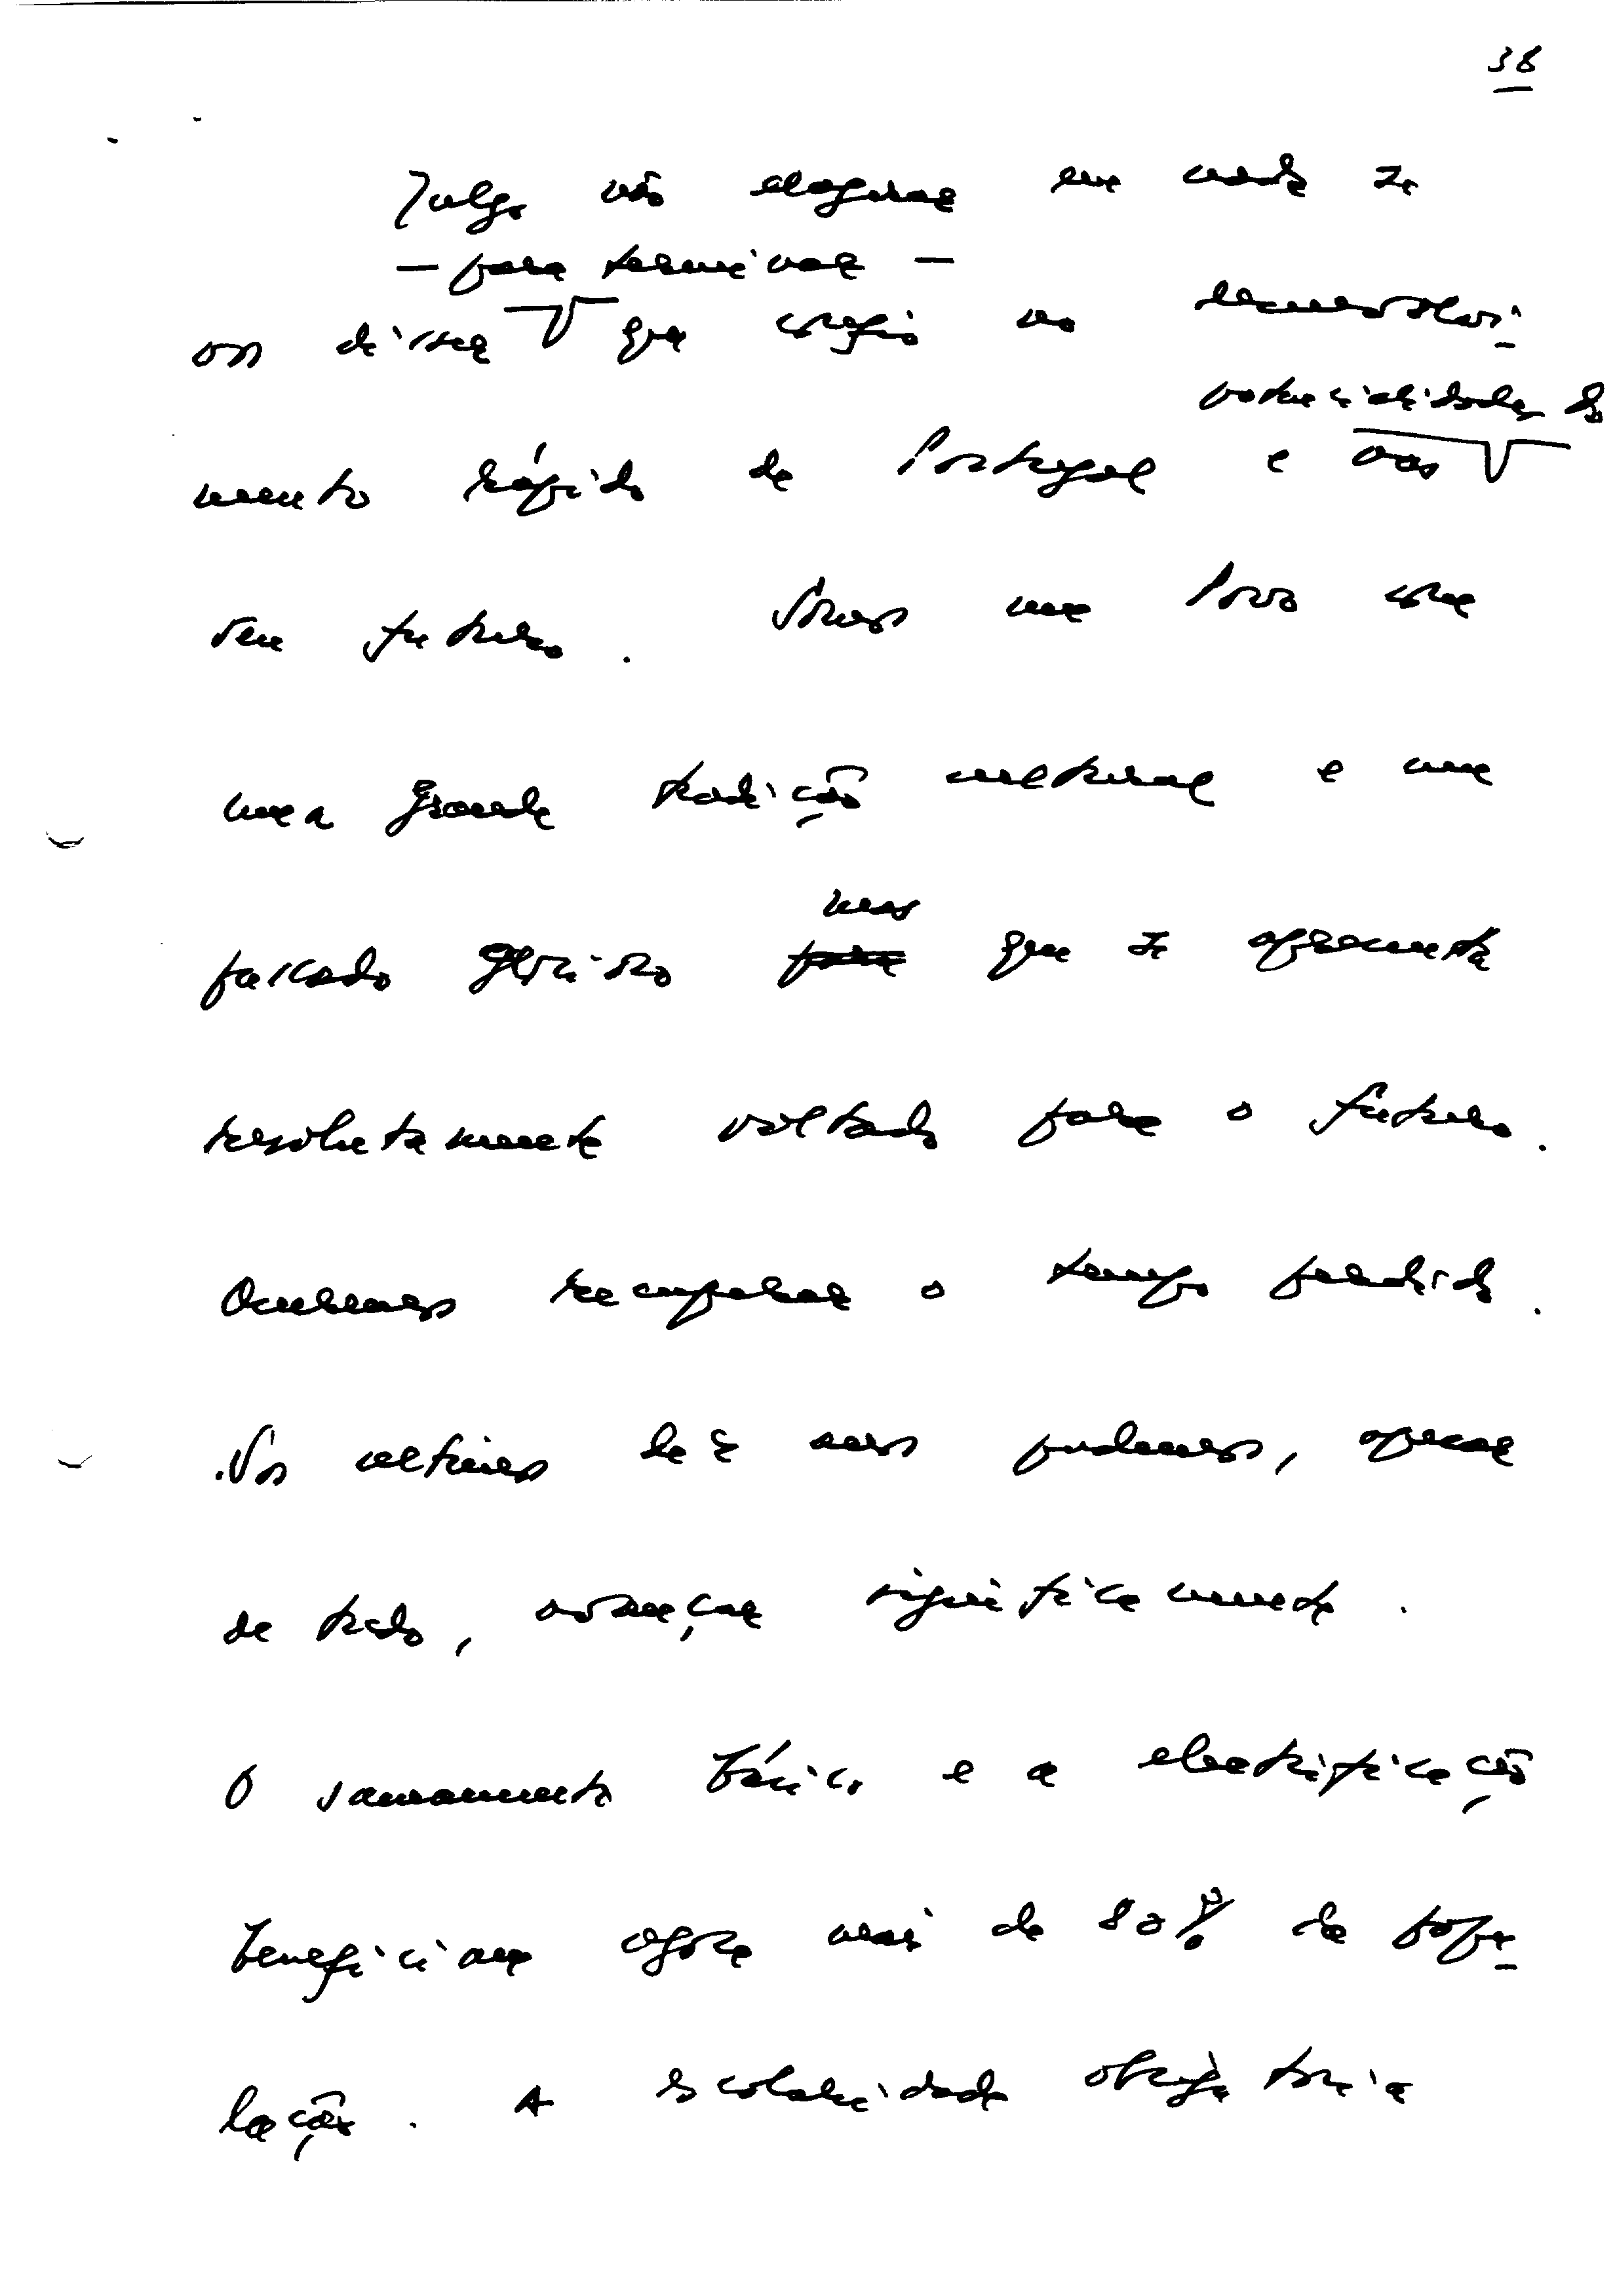 38
Julgo não exagerar em nada se
— para terminar —
vos disser que confio no desenvolvi-
potencialidades do
mento rápido de Portugal e nas
seu futuro. Somos um Povo com
uma grande tradição cultural e um
mas
passado glorioso para que se apresenta
resolutamente voltado para o futuro.
Queremos recuperar o tempo perdido.
Nos ultimos dez anos pudemos, apesar
de tudo, avançar significamente.
O saneamento básico e a electrificação
beneficiam agora mais de 80% da popu-
lação. A escolaridade obrigatória